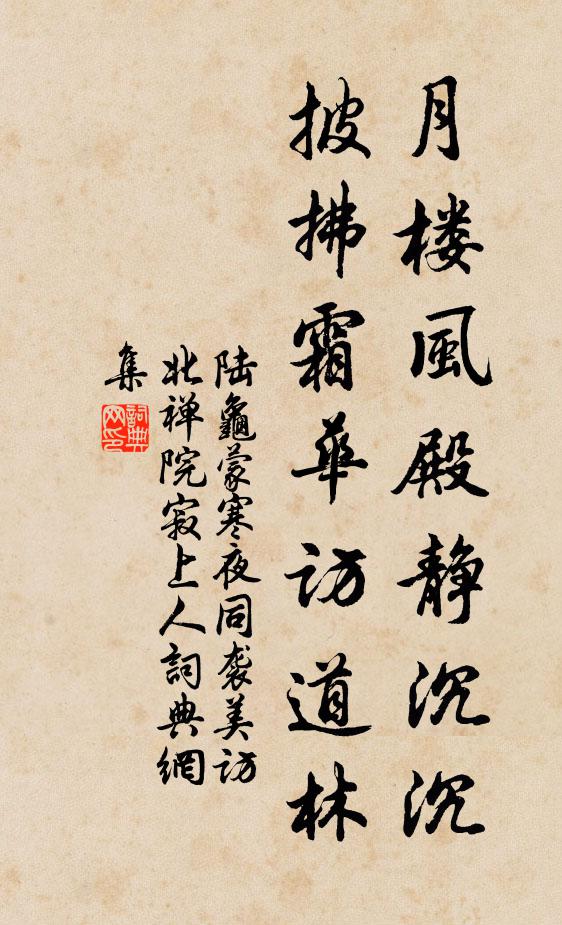 月楼風殿静沉沉
披拂霜華訪道林
陆龜蒙寒夜同袭美訪
北禅院寂上人詞典網
集
詞典网印